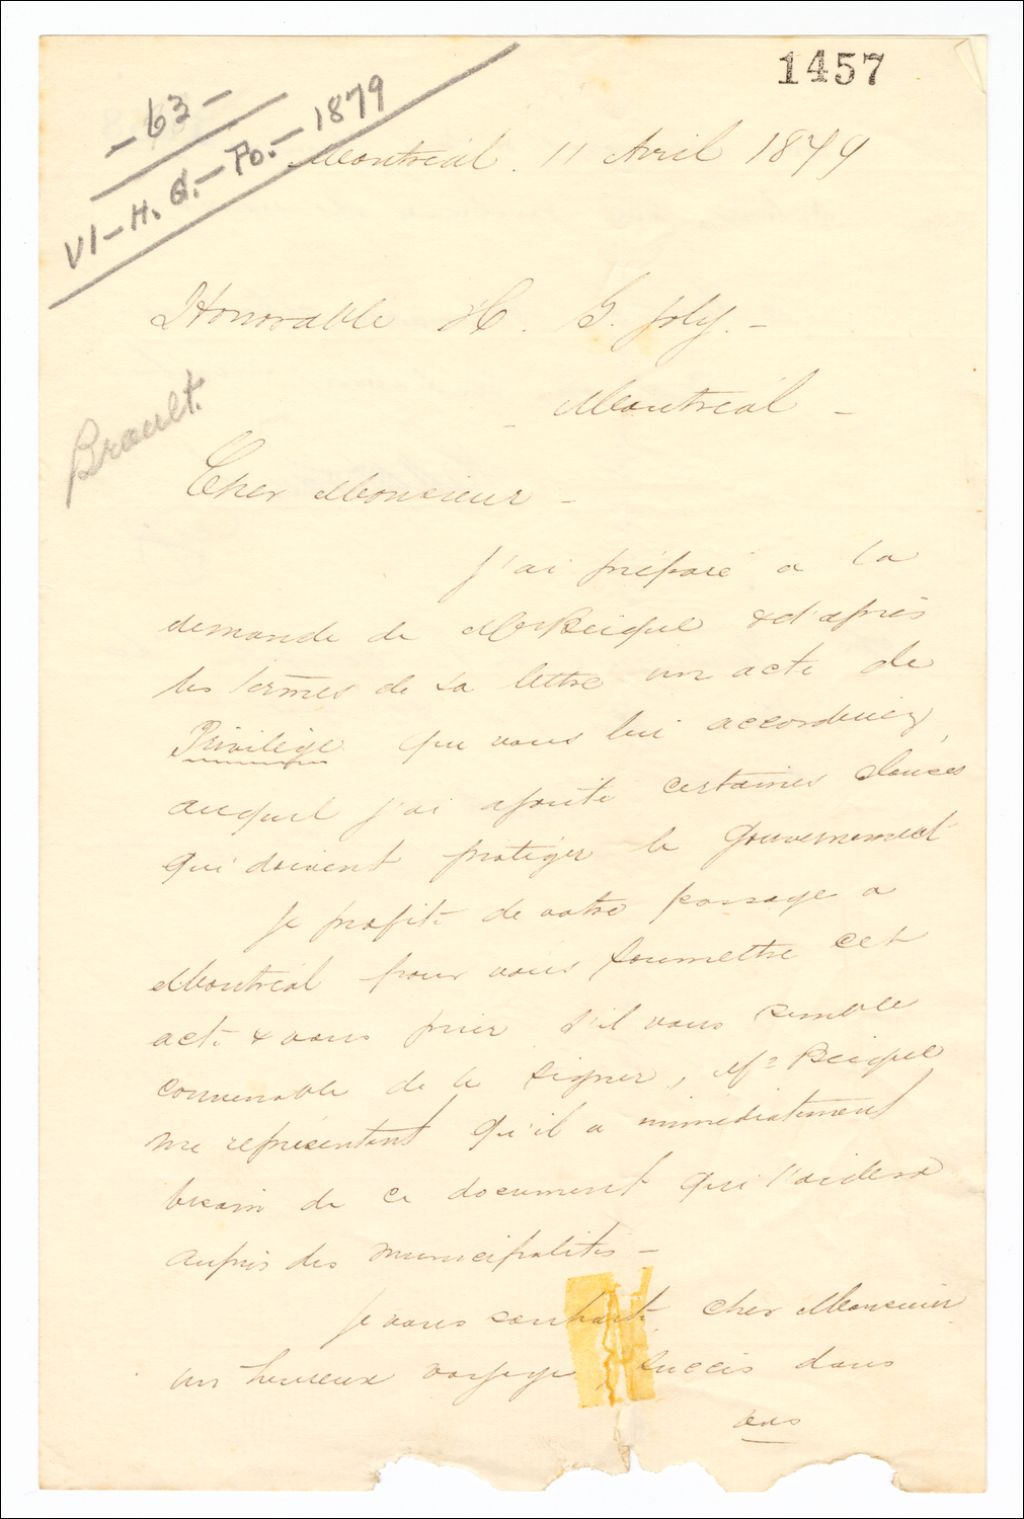 1457
- 63 -
VI - H. Q. - Po. - 1879
Montréal. 11 Avril 1879
Honorable H. G. Joly. -
Montréal -
Brault.
Cher Monsieur -
J'ai préparé a la
demande de Mr Beique & d'après
les termes de sa lettre un acte de
Privilége que vous lui accorderiez,
auquel j'ai ajouté certaines clauses
qui doivent protéger le Gouvernement
Je profite de votre passage a
Montréal pour vous soumettre cet
acte & vous prier s'il vous semble
convenable de le signer, Mr Beique
me représentant qu'il a immédiatement
besoin de ce document qui l'aidera
auprès des municipalités -
Je vous souhaite cher Monsieur
un heureux voyage, succès dans